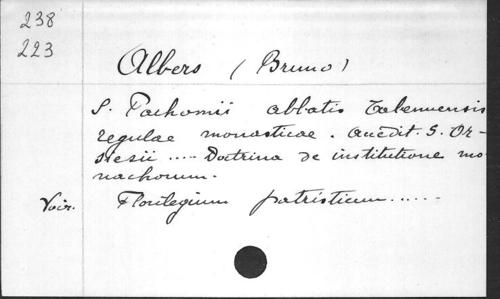 238
223
Albers (Bruno)
S. Pachomii abbatis Tabennensis
regulae monasticae. Accedit S. Or-
siesii ..... Doctrina de institutione mo
nachorum.
Voir. Florilegium patristicum......